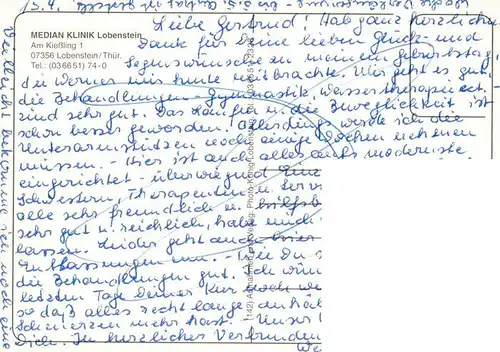 15.9.
MEDIAN KLINIK Lobenstein
Am Kießling 1
07356 Lobenstein/Thür.
Tel.: (036651) 74-0
Liebe Gertrud! Hab ganz herzlichen
Dank für Deine lieben Glück- und
Segenswünsche zu meinem Geburtstag,
die Werner mir heute mitbrachte. Mir geht es gut,
die Behandlungen - Gymnastik, Wassertherapie etc.
sind sehr gut. Das Laufen u. die Beweglichkeit ist
schon besser geworden. Allerdings werde ich die
Unterarmstützen noch einige Wochen nehmen
müssen. - Hier ist auch alles aufs modernste
eingerichtet - überwiegend
Schwestern, Therapeuten u.
alle sehr freundlich u. hilfsb
sehr gut u. reichlich, habe
lassen. Leider geht auch hier
Entlassungen - Wie Du s
die Behandlungen gut. Ich wün
letzten Tage Deiner Kur noch
so daß alles recht lange anhält
Schmerzen mehr hast. Unser
Dich. In herzlicher Verbunden
We
Vielleicht bekomme ich noch eine
(142) Aufnahme und Verlag: Photo-König, Lobenstein